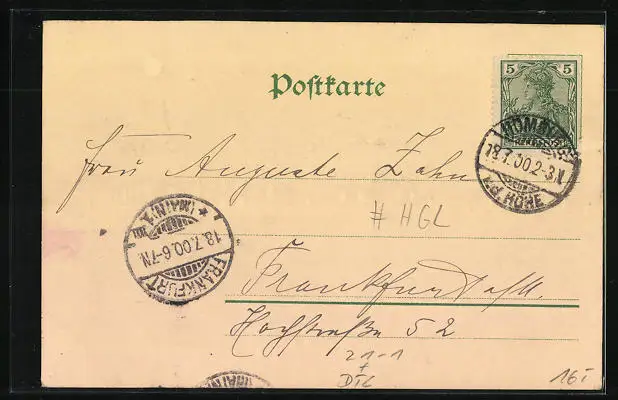 Postkarte
5 5
HOMBURG
18.7.00.2-3N
v.d. HÖHE
Frau Auguste Zahn
# HGL
* (MAIN) 1.
18.7.00.6-7N.
FRANKFURT
Frankfurt a/M.
Hochstraße 52
21-1
DTL
16i
(MAIN)